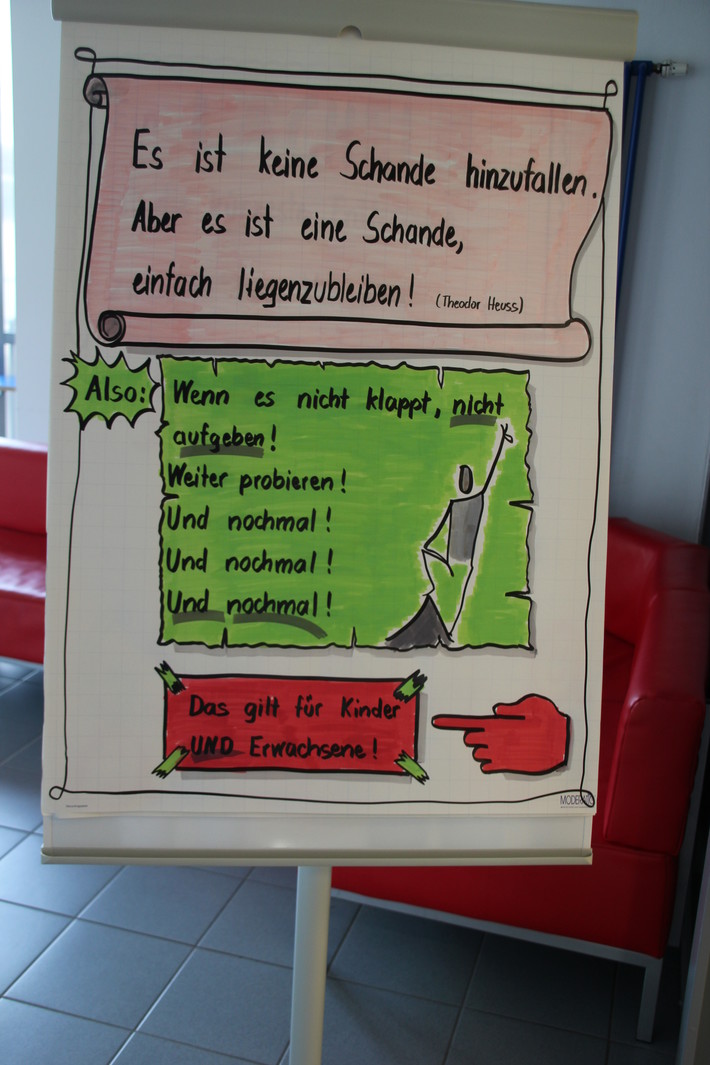 Es ist keine Schande hinzufallen.
Aber es ist eine Schande,
einfach liegenzubleiben! (Theodor Heuss)
Also:
Wenn es nicht klappt, nicht
aufgeben!
Weiter probieren!
Und nochmal!
Und nochmal!
Und nochmal!
Das gilt für Kinder
UND Erwachsene!